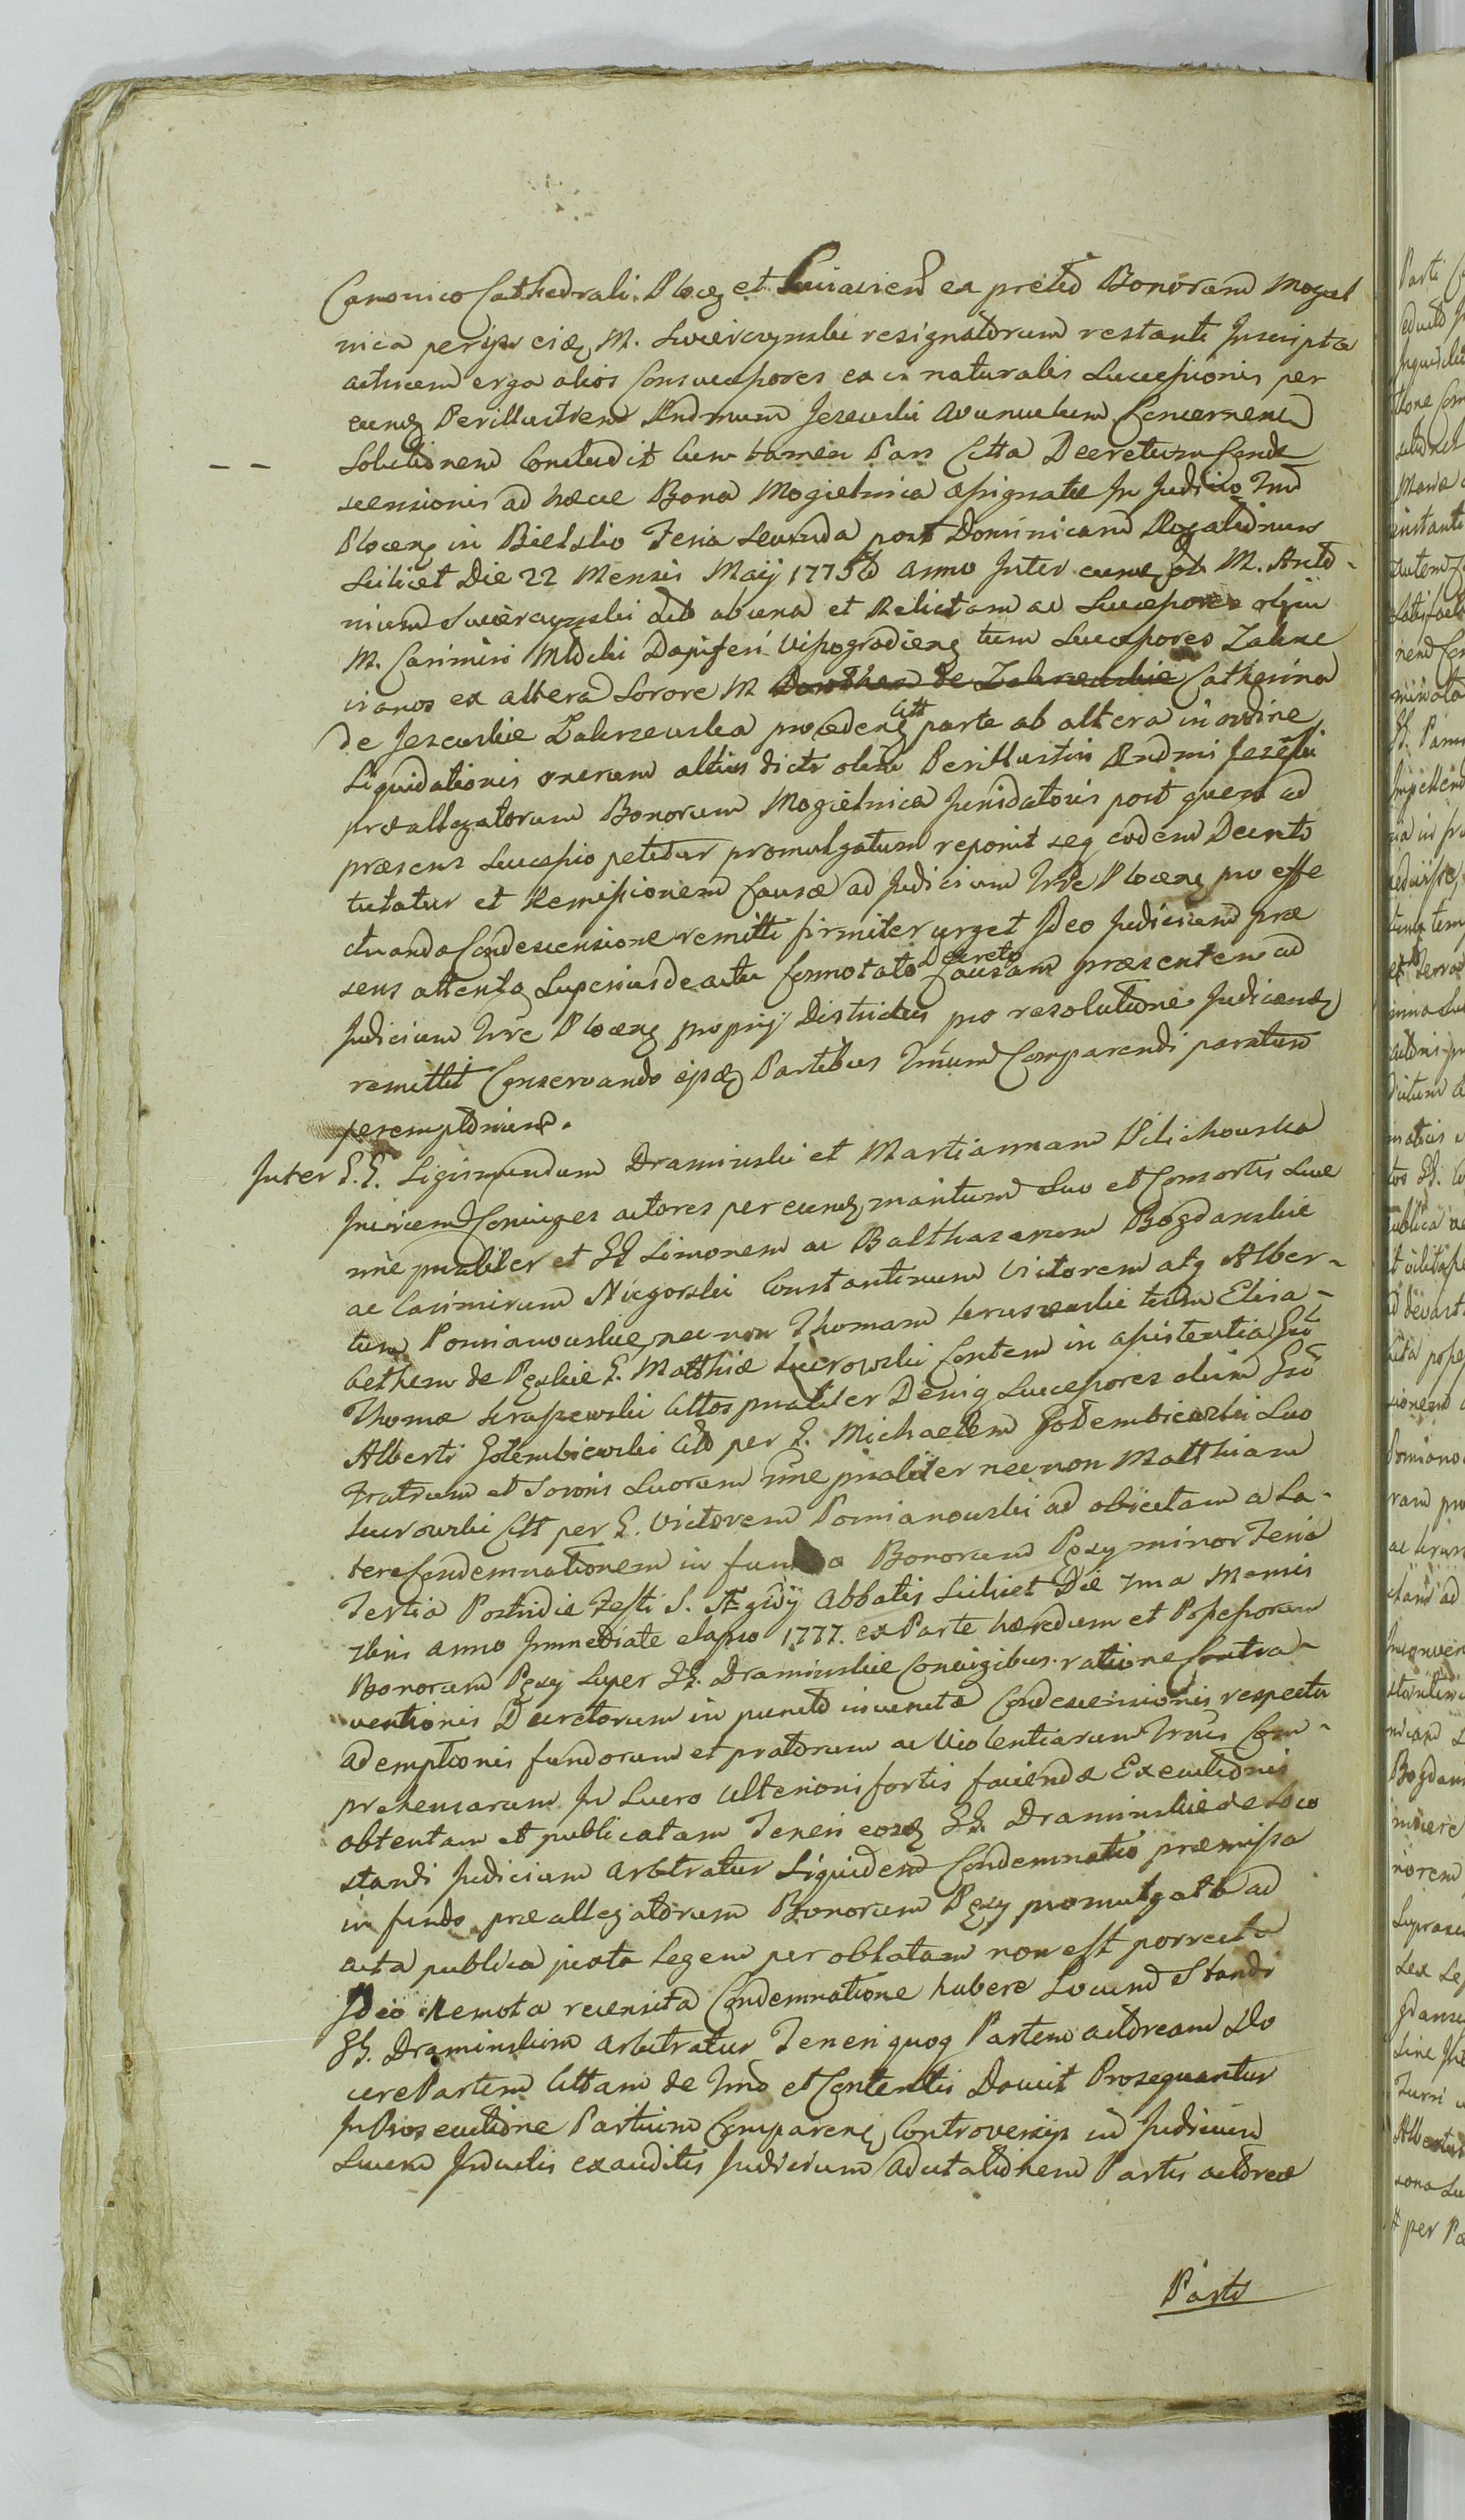 Canonico Cathedrali Plocen et Cuiavien ex pretio Bonorum Mogiel
nica per ipsr eidem M. Swiercynski resignatorum restanti Inscripta
actricem erga alios Consuccessores ex in naturalis Successionis per
eund Perillustrem Rndmum Jezewski avunculum Concernen
Solutionem Concludit cum tamen Pars Citta Decretum Conde
scensionis ad hæcce Bona Mogielnica assignatæ In Judicio Trid
Plocen in Bielsko Feria Secunda post Dominicam Rogationum
Scilicet Die 22 Mensis Maij 1775to Anno Inter eund et M. Anto-
nium Swiercynski Act ab una et Relictam ac Successores olim
M. Casimiri Mdcki Dapiferi Wissogrodien tum Successores Zakrze
vianos ex altera Sorore M Dorothea de Zakrzewskie Catharina
de Jezewskie Zakrzewska proceden Citt parte ab altera in ordine
Liquidationis onerum altius dicti olim Perillustris Rndmi Jezewski
præallegatorum Bonorum Mogielnica Juridatoris post quem ad
præsens Successio petitur promulgatum reponit seq eodem Decreto
tutatur et Remissionem Causæ ad Judicium Trre Plocen pro effe
ctuanda Condescensione remitti firmiter urget Ideo Judicium præ
sens attento Superius de actu connotato Decreto Causam præsentem ad
Judicium Trre Plocen proprij Districtus pro resolutione Judicand
remittit Conservando ipsis Partibus Trnum Comparendi paratum
peremptorium.
Inter G.G. Sigismundum Draminski et Martiannam Pilichowska
Invicem Conjuges actores per eund maritum Suo et Consortis Suæ
nne pnaliter et GG Simonem ac Balthasarum Bogdanskie
ac Casimirum Niegorski Constantinum Victorem atq Alber-
tum Pomianowskie, nec non Thomam Kruszewski tum Elisa-
betham de Pęskie G. Matthiæ Kurowski Contem in assistentia Gsi
Thomæ Kraszewski Cittos pnaliter Deniq Successores olim Gsi
Alberti Gołembiewski Citt per G. Michaelem Gołembiewski Suo
Fratrum et Sororis Suorum nne pnaliter nec non Matthiam
Kurowski Citt per G. Victorem Pomianowski ad obiectam a La-
tere Condemnationem in fundo Bonorum Pęxy minor Feria
Tertia Postridie Festi S. Ægidij Abbatis Scilicet Die 2ma Mensis
7bris Anno Immediate elapso 1777. ex Parte hæredum et Possessorum
Bonorum Pęxy Super GG. Draminskie Conjugibus ratione Contra-
ventionis Decretorum in puncto inventæ Condescensionis respectu
ademptionis fundorum et pratorum ac Violentiarum Trnis Com-
prehensarum In Lucro Ulterioris fortis faciendæ Executionis
obtentam et publicatam Teneri eosd GG. Draminskie de Loco
standi Judicium Arbitratur Siquidem Condemnatio præmissa
in fundo præallegatorum Bonorum Pęxy promulgata ad
acta publica juxta Legem per oblatam non est porrecta
Ideo Remota recensita Condemnatione habere Locum Standi
GG. Draminskim arbitratur Teneri quoq Partem actoream Do
cere Partem Cittam de Trno et Contentis Docuit Prosequantur
In Prosecutione Partium Comparen Controversijs in Judicium
Suum Inductis exauditis Judicium Ad citationem Partis actoreæ
Parte